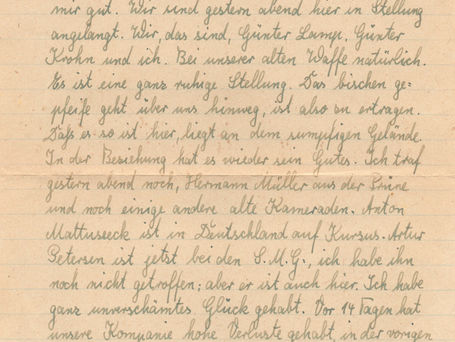 mir gut. Wir sind gestern abend hier in Stellung
angelangt. Wir, das sind, Günter Lamp, Günter
Krohn und ich. Bei unserer alten Waffe natürlich.
Es ist eine ganz ruhige Stellung. Das bischen ge-
pfeife geht über uns hinweg, ist also zu ertragen.
Daß es so ist hier, liegt an dem sumpfigen Gelände.
In der Beziehung hat es wieder sein Gutes. Ich traf
gestern abend noch, Hermann Müller aus der Prüne
und noch einige andere alte Kameraden. Anton
Mattuseeck ist in Deutschland auf Kursus. Artur
Petersen ist jetzt bei den S.M.G., ich habe ihn
noch nicht getroffen; aber er ist auch hier. Ich habe
ganz unverschämtes Glück gehabt. Vor 14 Tagen hat
unsere Kompanie hohe Verluste gehabt in der vorigen